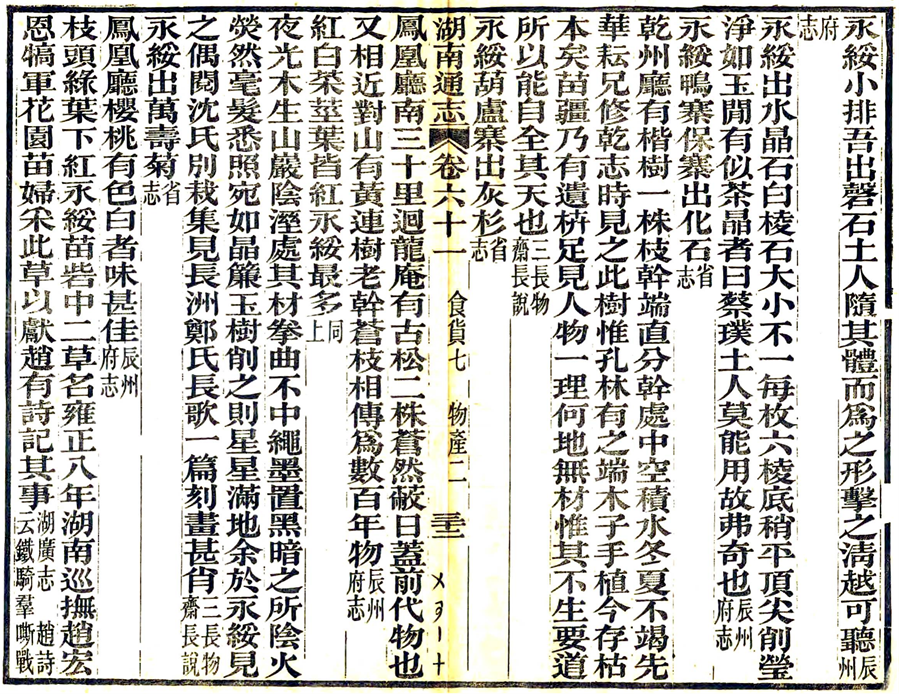 永綏小排吾出磬石土人隨其體而爲之形擊之淸越可聽辰州
府志
永綏出水晶石白棱石大小不一每枚六棱底稍平頂尖削瑩
淨如玉閒有似茶晶者曰蔡璞土人莫能用故弗奇也辰州府志
永綏鴨寨保寨出化石省志
乾州廳有楷樹一株枝幹端直分幹處中空積水冬夏不竭先
華耘兄修乾志時見之此樹惟孔林有之端木子手植今存枯
本矣苗疆乃有遺枿足見人物一理何地無材惟其不生要道
所以能自全其天也三長物齋長說
永綏葫蘆寨出灰杉省志
湖南通志 卷六十一 食貨七 物產二 三三
鳳凰廳南三十里迴龍庵有古松二株蒼然蔽日蓋前代物也
又相近對山有黃連樹老幹蒼枝相傳爲數百年物辰州府志
紅白菜莖葉皆紅永綏最多同上
夜光木生山巖陰溼處其材拳曲不中繩墨置黑暗之所陰火
熒然毫髮悉照宛如晶簾玉樹削之則星星滿地余於永綏見
之偶閱沈氏別栽集見長洲鄭氏長歌一篇刻畫甚肖三長物齋長說
永綏出萬壽菊省志
鳳凰廳櫻桃有色白者味甚佳辰州府志
枝頭綠葉下紅永綏苗砦中二草名雍正八年湖南巡撫趙宏
恩犒軍花園苗婦釆此草以獻趙有詩記其事湖廣志 趙詩云鐵騎羣嘶戰